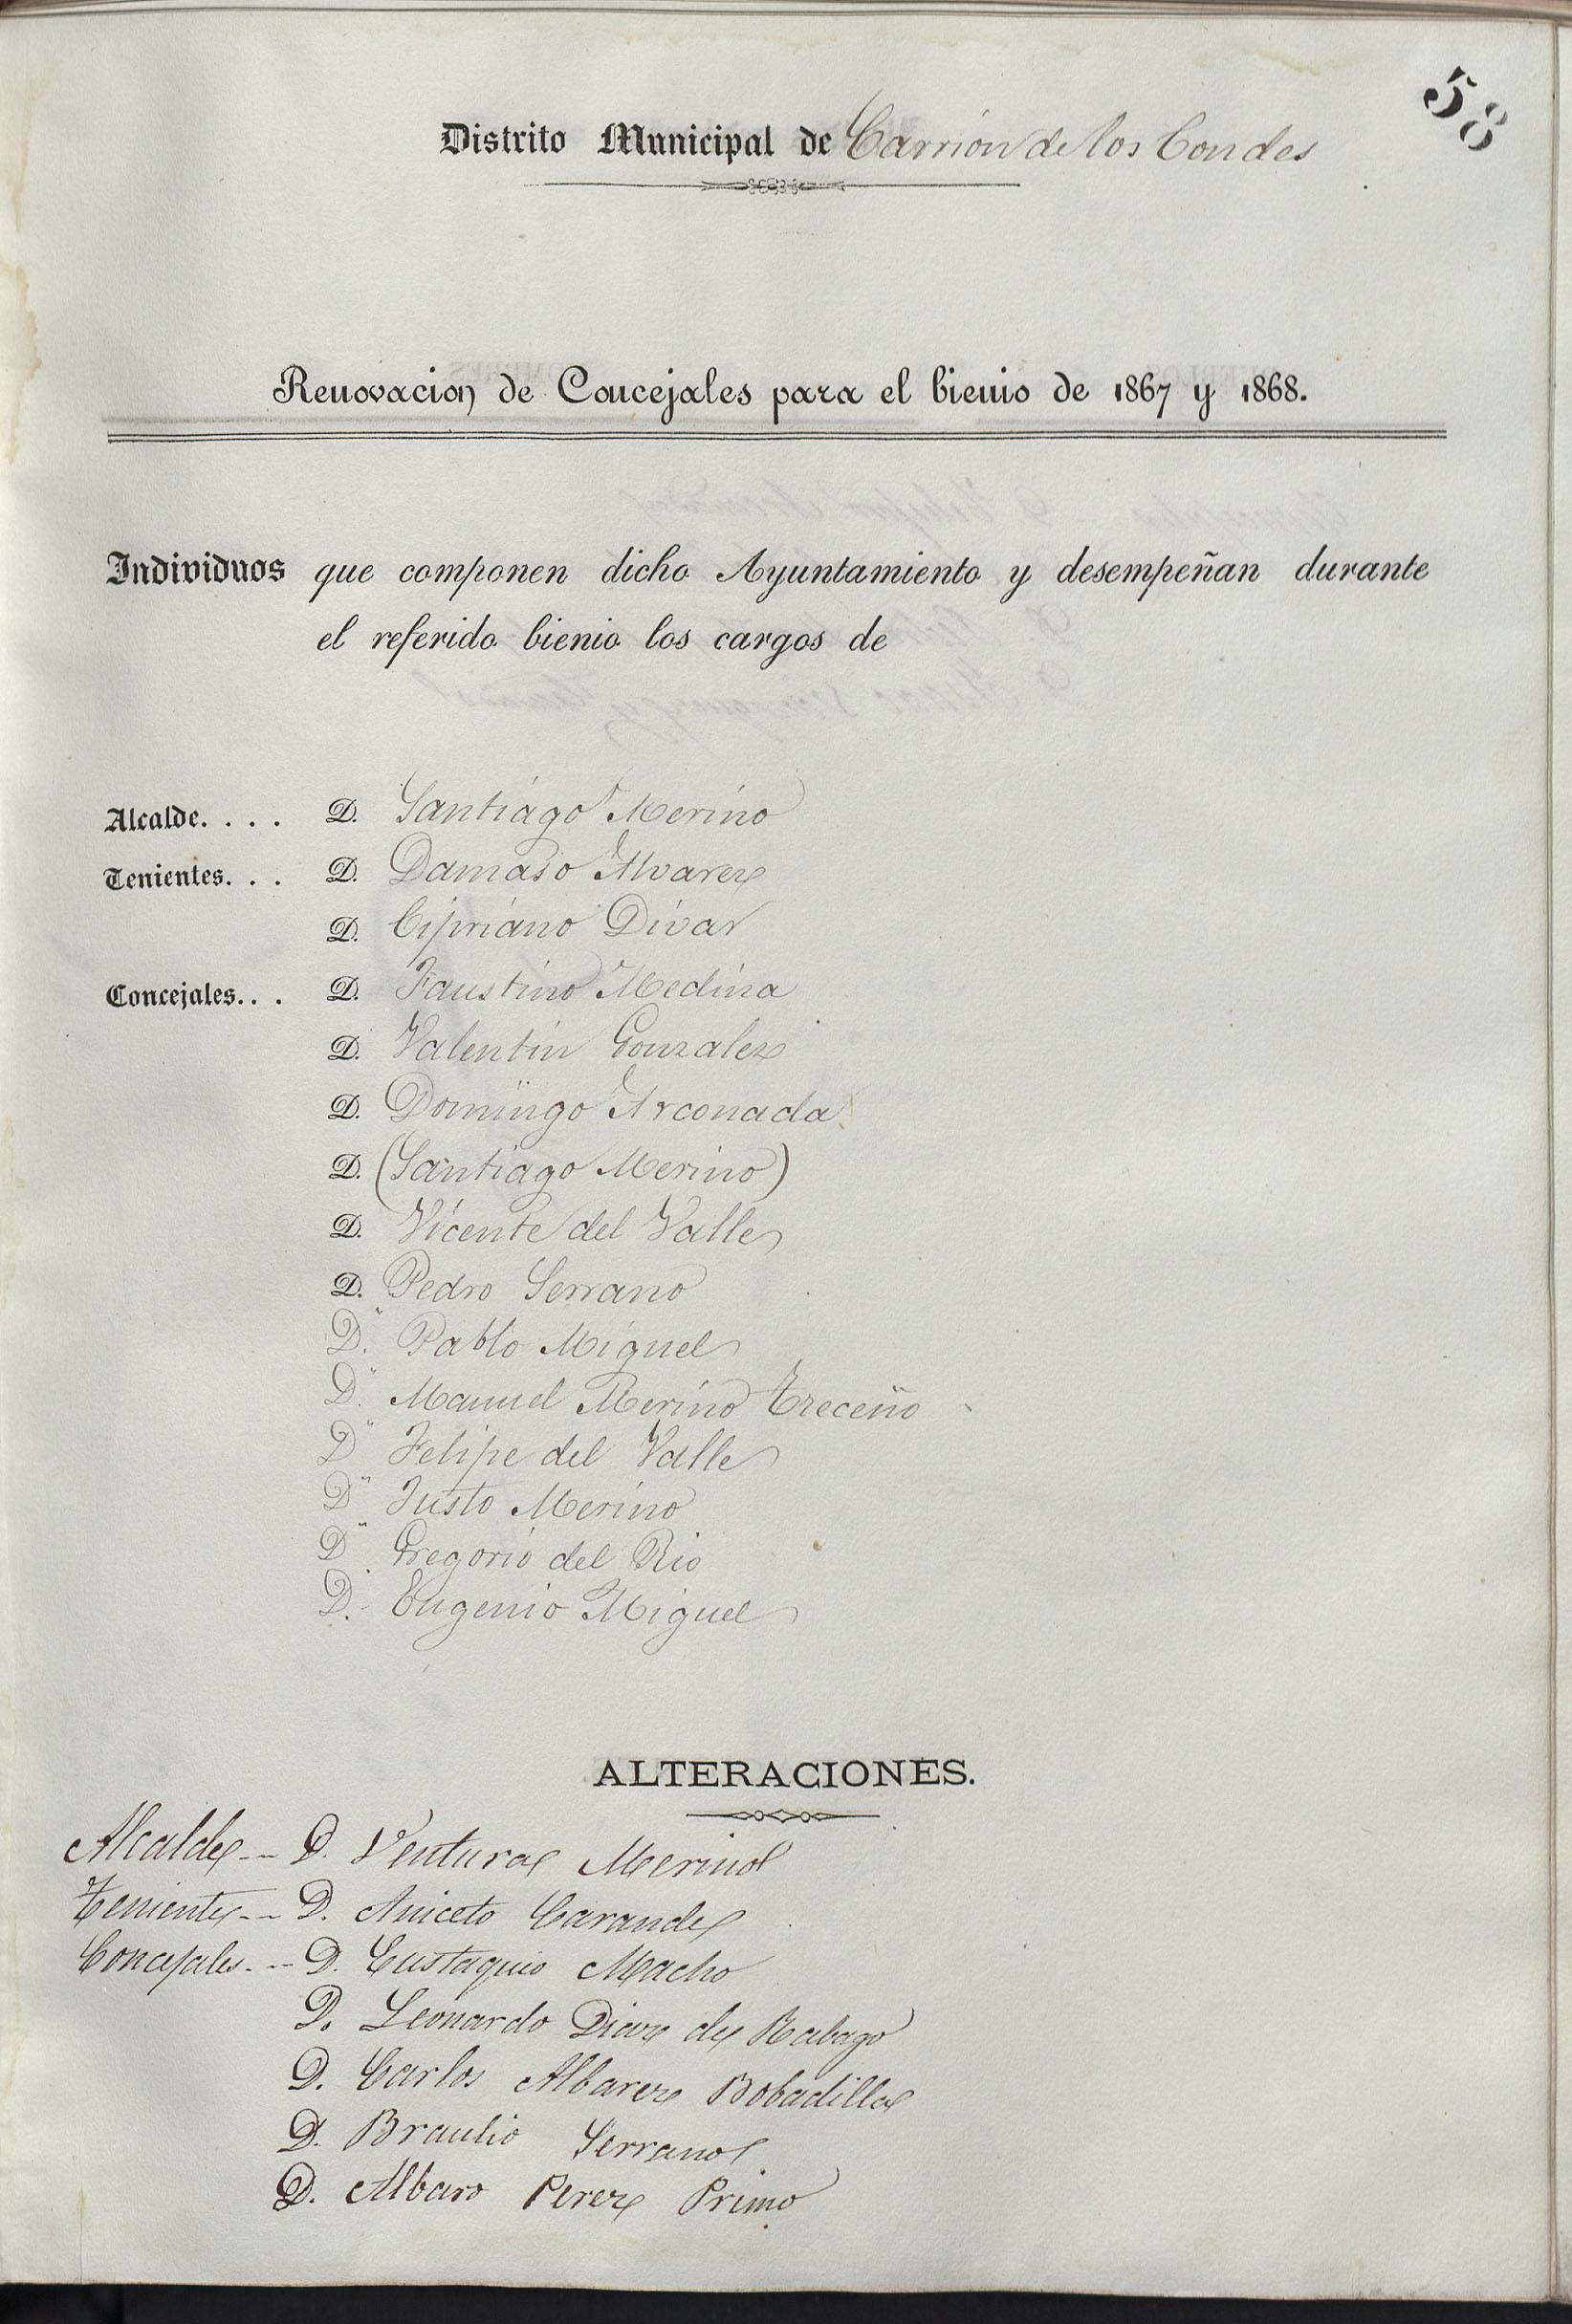 58
Distrito Municipal de Carrion de los Condes
Renovacion de Concejales para el bienio de 1867 y 1868.
Individuos que componen dicho Ayuntamiento y desempeñan durante
el referido bienio los cargos de
Alcalde. . . . D. Santiago Merino
Tenientes. . . D. Damaso Alvarez
D. Cipriano Divar
Concejales. . . D. Faustino Medina
D. Valentin Gonzalez
D. Domingo Arconada
D. (Santiago Merino)
D. Vicente del Valle
D. Pedro Serrano
D. Pablo Miguel
D. Manuel Merino Treceño
D. Felipe del Valle
D. Justo Merino
D. Gregorio del Rio
D. Eugenio Miguel
ALTERACIONES.
Alcalde -- D. Ventura Merino
Teniente -- D. Aniceto Carande
Concejales. -- D. Eustaquio Macho
D. Leonardo Diaz de Rabago
D. Carlos Albarez Bobadilla
D. Braulio Serrano
D. Albaro Perez Primo